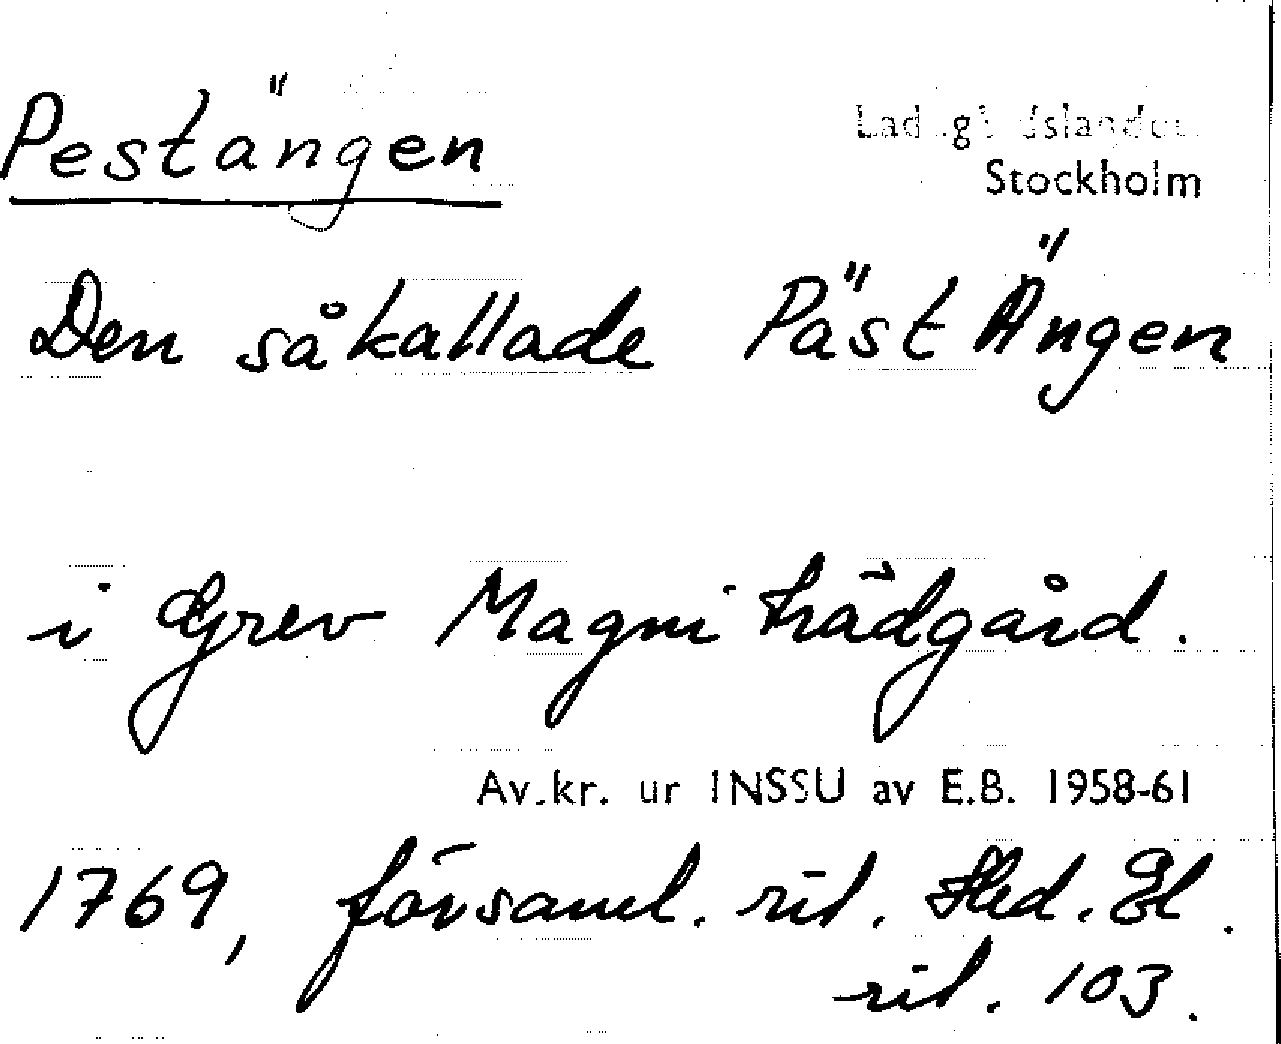 Pestängen
Stockholm
Den så kallade Päst Ängen
i Grev Magni trädgård.
Av.kr. ur INSSU av E.B. 1958-61
1769, församl. rit. Hed. El.
rit. 103.